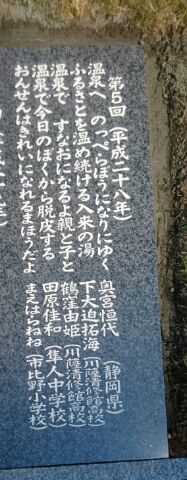 第5回（平成二十八年）
温泉へ のっぺらぼうになりにゆく 奥宮恒代（静岡県）
ふるさとを温め続ける入来の湯 下大迫拓海（川薩清修館高校）
温泉で すなおになるよ親と子と 鶴窪由姫（川薩清修館高校）
温泉で今日のぼくから脱皮する 田原佳和（隼人中学校）
おんせんはきれいになれるまほうだよ まえはらねね（市比野小学校）